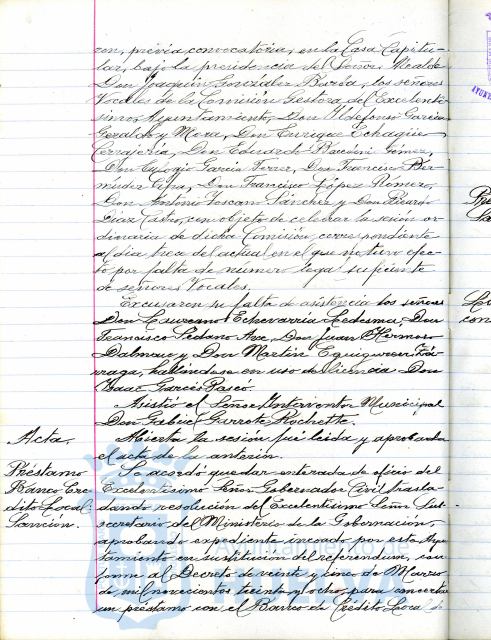 ron, previa convocatoria, en la Casa Capitu-
lar, bajo la presidencia del Señor Alcalde
Don Joaquín González Barba, los señores
Vocales de la Comisión Gestora del Excelentí-
simo Ayuntamiento, Don Ildefonso García
Geraldo y Mora, Don Enrique Echagüe
Cerrajería, Don Eduardo Baccioni Gómez,
Don Eulogio García Ferrer, Don Francisco Ber-
múdez, Don Francisco López Romero,
Don Antonio Toscano Sánchez y Don Ricardo
Díaz Castro, con objeto de celebrar la sesión or-
dinaria de dicha Comisión, correspondiente
al día trece del actual en el que no tuvo efec-
to por falta de número legal suficiente
de señores Vocales.
Excusaron su falta de asistencia los señores
Don Laureano Echevarría Ledesma, Don
Francisco Sedano Arce, Don Juan Hermoso
Dalmau y Don Martín
hallándose en uso de licencia Don
Isaac García
Asistió el Señor Interventor Municipal
Don Gabriel Garrote Rochette.
Acta, Abierta la sesión fué leída y aprobada
el acta de la anterior.
Préstamo Se acordó quedar enterada de oficio del
Banco Cré- Excelentísimo Señor Gobernador Civil trasla-
dito Local dando resolución del Excelentísimo Señor Sub-
Sanción. secretario del Ministerio de la Gobernación,
aprobando expediente incoado por este Ayun-
tamiento en sustitución del referendum, con-
forme al Decreto de veinte y cinco de Marzo
de mil novecientos treinta y ocho, para concertar
un préstamo con el Banco de Crédito Local de